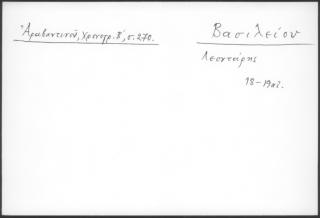 Ἀραβαντινοῦ, Χρονογρ. Β΄, σ. 270.
Βασιλείου
Λεοντάρης
18-19 αἰ.